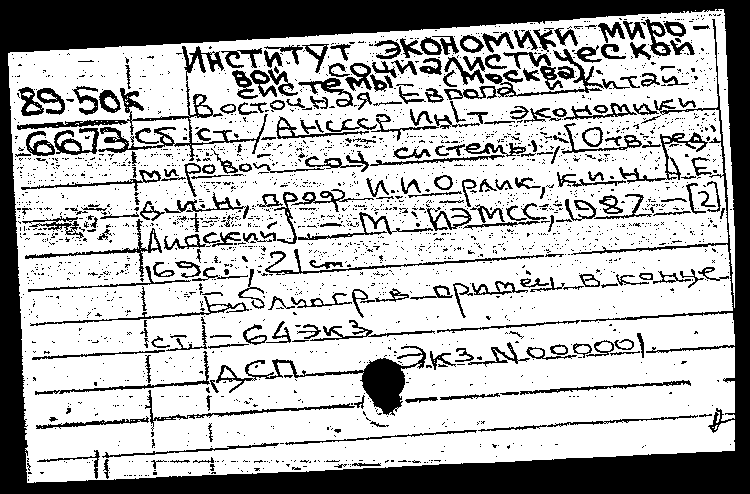 Институт экономики миро-
вой социалистической
системы (Москва).
89-50к
6673
Восточная Европа и Китай:
Сб. ст. / АН СССР, Ин-т экономики
мировой соц. системы; [Отв. ред.:
д.и.н., проф. И.И. Орлик, к.и.н. Л.Е.
Липский]. - М.: ИЭМСС, 1987. - [2],
169 с.; 21 см.
Библиогр. в примеч. в конце
ст. - 64 экз.
ДСП. Экз. N 000001.